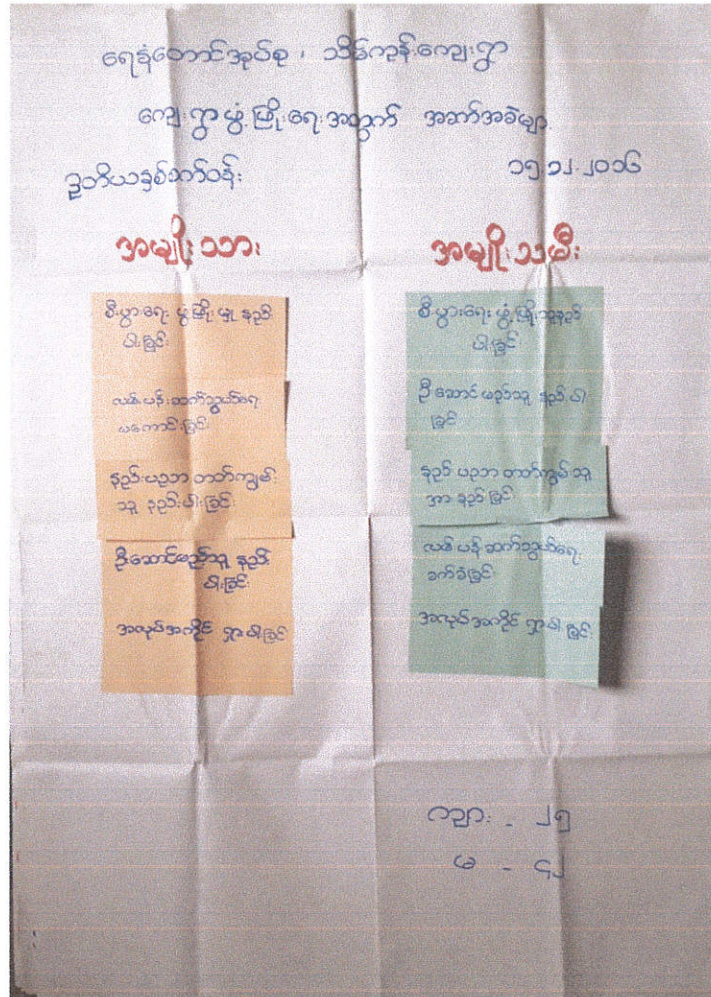 ရေနံတောင်အုပ်စု ၊ သိမ်ကုန်းကျေးရွာ
ကျေးရွာဖွံ့ဖြိုးရေးအတွက် အခက်အခဲများ
ဒုတိယနှစ်တာဝန်း
၁၅.၁၂.၂၀၁၆
အမျိုးသား
စီးပွားရေး ဖွံ့ဖြိုးမှု နည်း
ပါးခြင်း
လမ်းပန်းဆက်သွယ်ရေး
မကောင်းခြင်း
နည်းပညာ တတ်ကျွမ်း
သူ နည်းပါးခြင်း
ဦးဆောင်မည့်သူ နည်း
ပါးခြင်း
အလုပ်အကိုင် ရှားပါးခြင်း
အမျိုးသမီး
စီးပွားရေး ဖွံ့ဖြိုးသူနည်း
ပါးခြင်း
ဦးဆောင်မည့်သူ နည်းပါး
ခြင်း
နည်းပညာ တတ်ကျွမ်းသူ
အားနည်းခြင်း
လမ်းပန်းဆက်သွယ်ရေး
ခက်ခဲခြင်း
အလုပ်အကိုင် ရှားပါးခြင်း
ကျား - ၂၅
မ - ၄၂